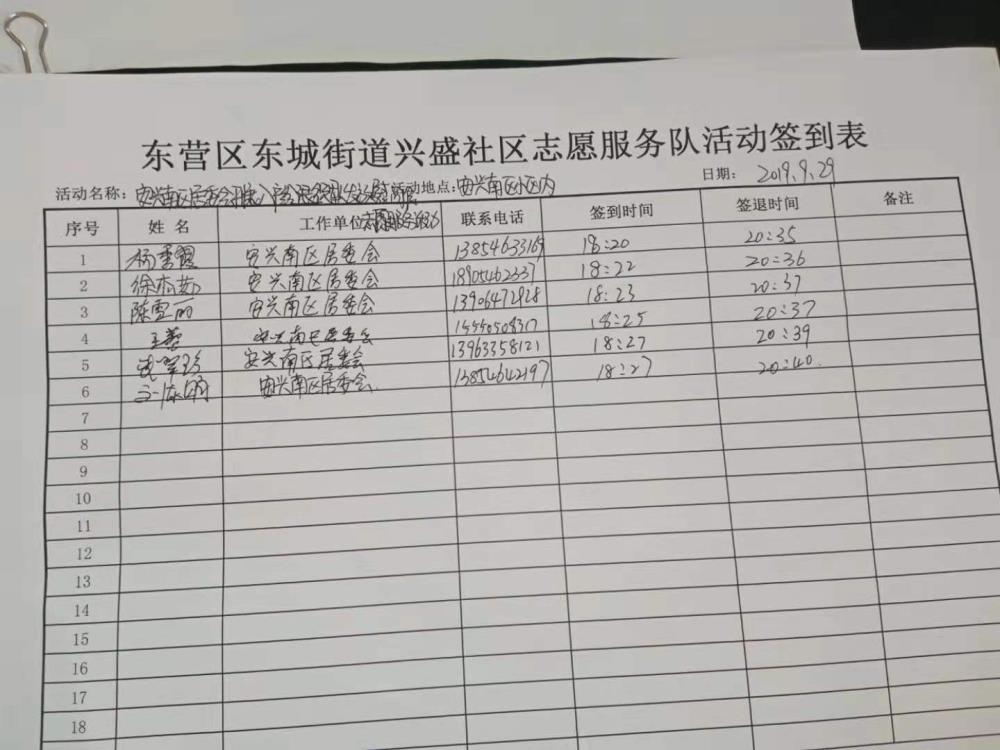 东营区东城街道兴盛社区志愿服务队活动签到表
活动名称： 安兴南区居委会 活动地点：安兴南区小区内 日期： 2019.9.29
序号 姓 名 工作单位 联系电话 签到时间 签退时间 备注
1 杨秀霞 安兴南区居委会 13854633169 18:20 20:35
2 徐 安兴南区居委会 18905462337 18:22 20:36
3 陈雪丽 安兴南区居委会 13906472928 18:23 20:37
4 王蓉 安兴南区居委会 18:25 20:37
5 安兴南区居委会 13963358121 18:27 20:39
6 安兴南区居委会 13854642197 18:27 20:40
7
8
9
10
11
12
13
14
15
16
17
18